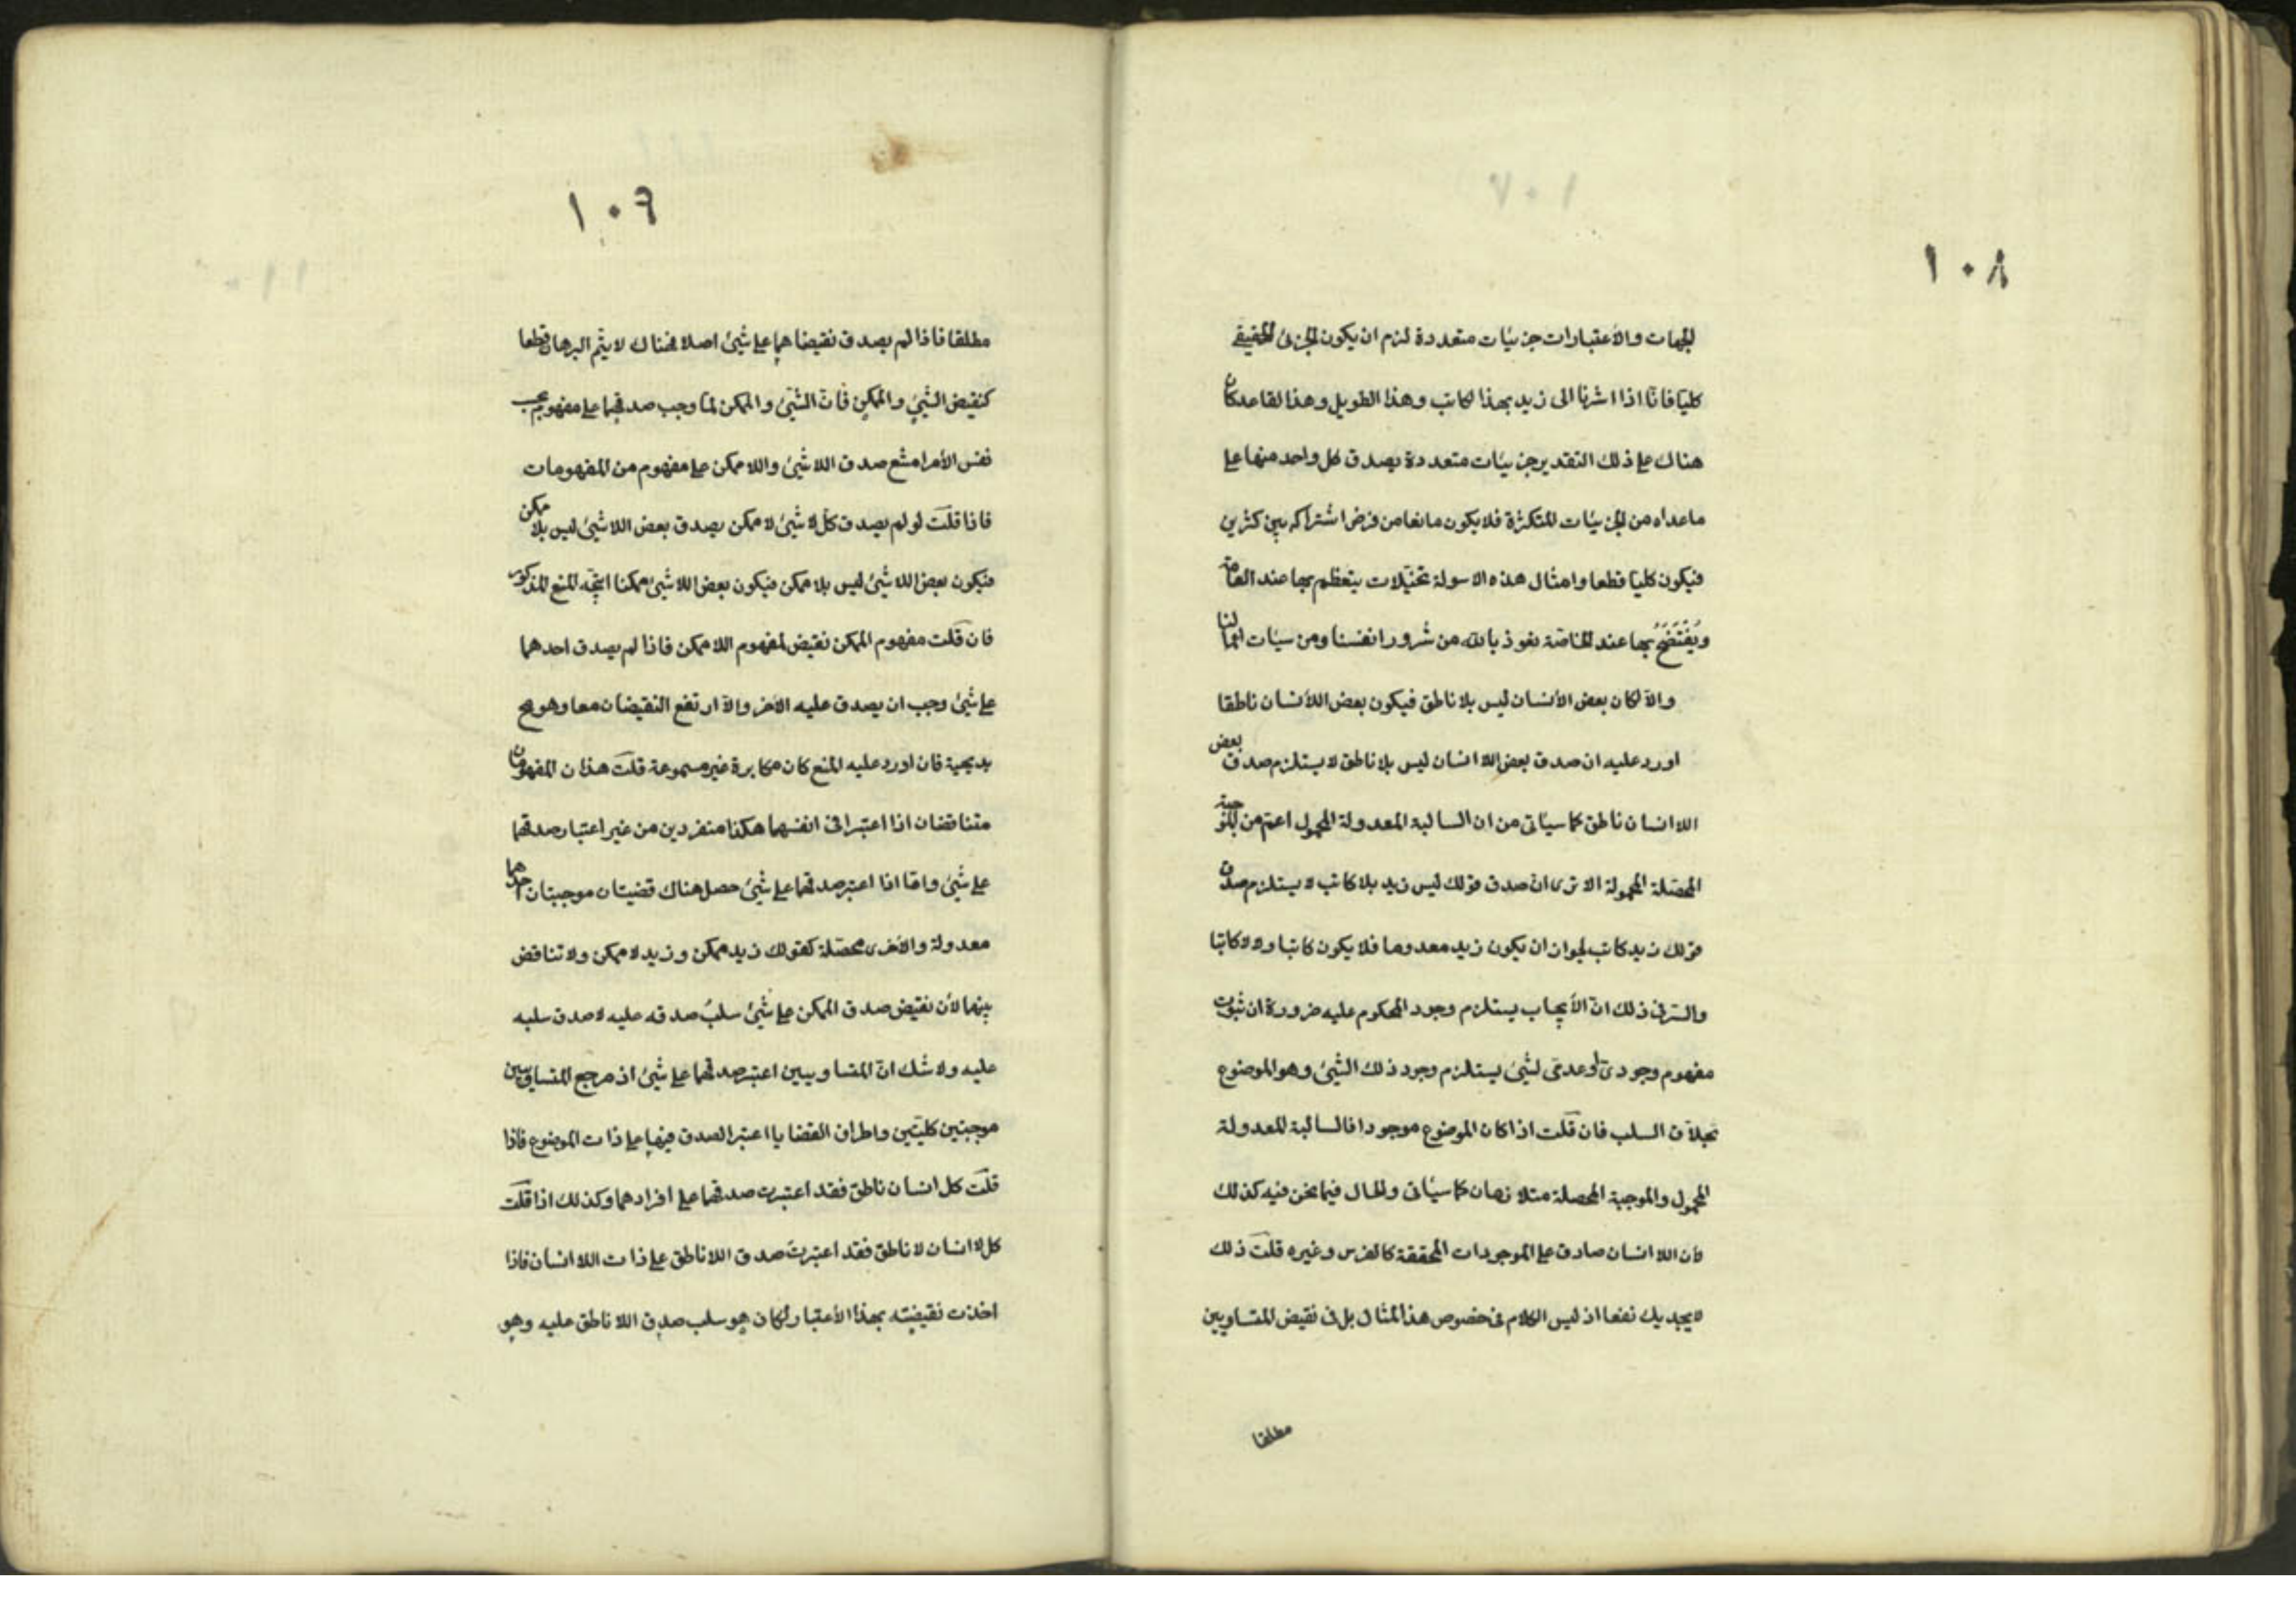 ١٠٨
الجهات والأعتبارات جزئيات متعددة لزم ان يكون الجزئ الحقيقے
كليّا فانّا اذا اشرنا الى زيد بهذا الكاتب وهذا الطويل وهذا القاعد كان
هناك علے ذلك التقدير جزئيات متعددة يصدق كل واحد منها علے
ماعداه من الجزئيات المتكثرة فلا يكون مانعا من فرض اشتراكه بين كثرين
فيكون كليّا قطعا وامثال هذه الاسولة تخيّلات يتعظم بها عند العامة
ويُفْتَضَحُ بها عند الخاصّة نعوذ بالله من شرور انفسنا ومن سيّات اعمالنا
والاّ لكان بعض الأنسان ليس بلا ناطق فيكون بعض اللاأنسان ناطقا
اورد عليه ان صدق بعض اللا انسان ليس بلا ناطق لا يستلزم صدق بعض
اللا انسان ناطق كما سيأتى من ان السالبة المعدولة المحمول اعمّ من الموجبة
المحصّلة المحمولة الا ترى انّ صدق قولك ليس زيد بلا كاتب لا يستلزم صدق
قولك زيد كاتب لجواز ان يكون زيد معدوما فلا يكون كاتبا ولا لا كاتبا
والسّر فى ذلك انّ الأيجاب يستلزم وجود المحكوم عليه ضرورة ان ثبوت
مفهوم وجودىّ او عدمىّ لشئ يستلزم وجود ذلك الشئ وهو الموضوع
بخلاف السلب فان قلت اذا كان الموضوع موجودا فالسالبة المعدولة
المحمول والموجبة المحصلة متلازمان كما سيأتى والحال فيما نحن فيه كذلك
لأن اللا انسان صادق علے الموجودات المحققة كالفرس وغيره قلت ذلك
لا يجديك نفعا اذ ليس الكلام فى خصوص هذا المثال بل فى نقيض المتساويين
مطلقا
١٠٩
مطلقا فاذا لم يصدق نقيضاهما علے شئ اصلا فهناك لا يتم البرهان قطعا
كنقيض الشئ والممكن فانّ الشئ والممكن لمّا وجب صدقهما علے مفهوم بحسب
نفس الأمر امتنع صدق اللاشئ واللاممكن علے مفهوم من المفهومات
فاذا قلت لو لم يصدق كل لا شئ لا ممكن يصدق بعض اللا شئ ليس بلا ممكن
فيكون بعض اللا شئ ليس بلا ممكن فيكون بعض اللا شئ ممكنا اتّجه المنع المذكور
فان قلت مفهوم الممكن نقيض لمفهوم اللا ممكن فاذا لم يصدق احدهما
علے شئ وجب ان يصدق عليه الأخر والاّ ارتفع النقيضان معا وهو مح
بديهية فان اورد عليه المنع كان مكابرة غير مسموعة قلت هذان المفهومان
متناقضان اذا اعتبرا فى انفسهما هكذا منفردين من غير اعتبار صدقهما
علے شئ وامّا اذا اعتبر صدقهما علے شئ حصل هناك قضيتان موجبتان احدهما
معدولة والأخرى محصّلة كقولك زيد ممكن وزيد لا ممكن ولا تناقض
بينهما لأن نقيض صدق الممكن علے شئ سلبُ صدقه عليه لا صدق سلبه
عليه ولا شك انّ المتساويين اعتبر صدقهما علے شئ اذ مرجع المتساويين
موجبتين كليتين واطراف القضايا اعتبر الصدق فيها علے ذات الموضوع فاذا
قلت كل انسان ناطق فقد اعتبرت صدقهما علے افرادهما وكذلك اذا قلت
كل لا انسان لا ناطق فقد اعتبرت صدق اللا ناطق علے ذات اللا انسان فاذا
اخذت نقيضيته بهذا الأعتبار لكان هو سلب صدق اللا ناطق عليه وهو